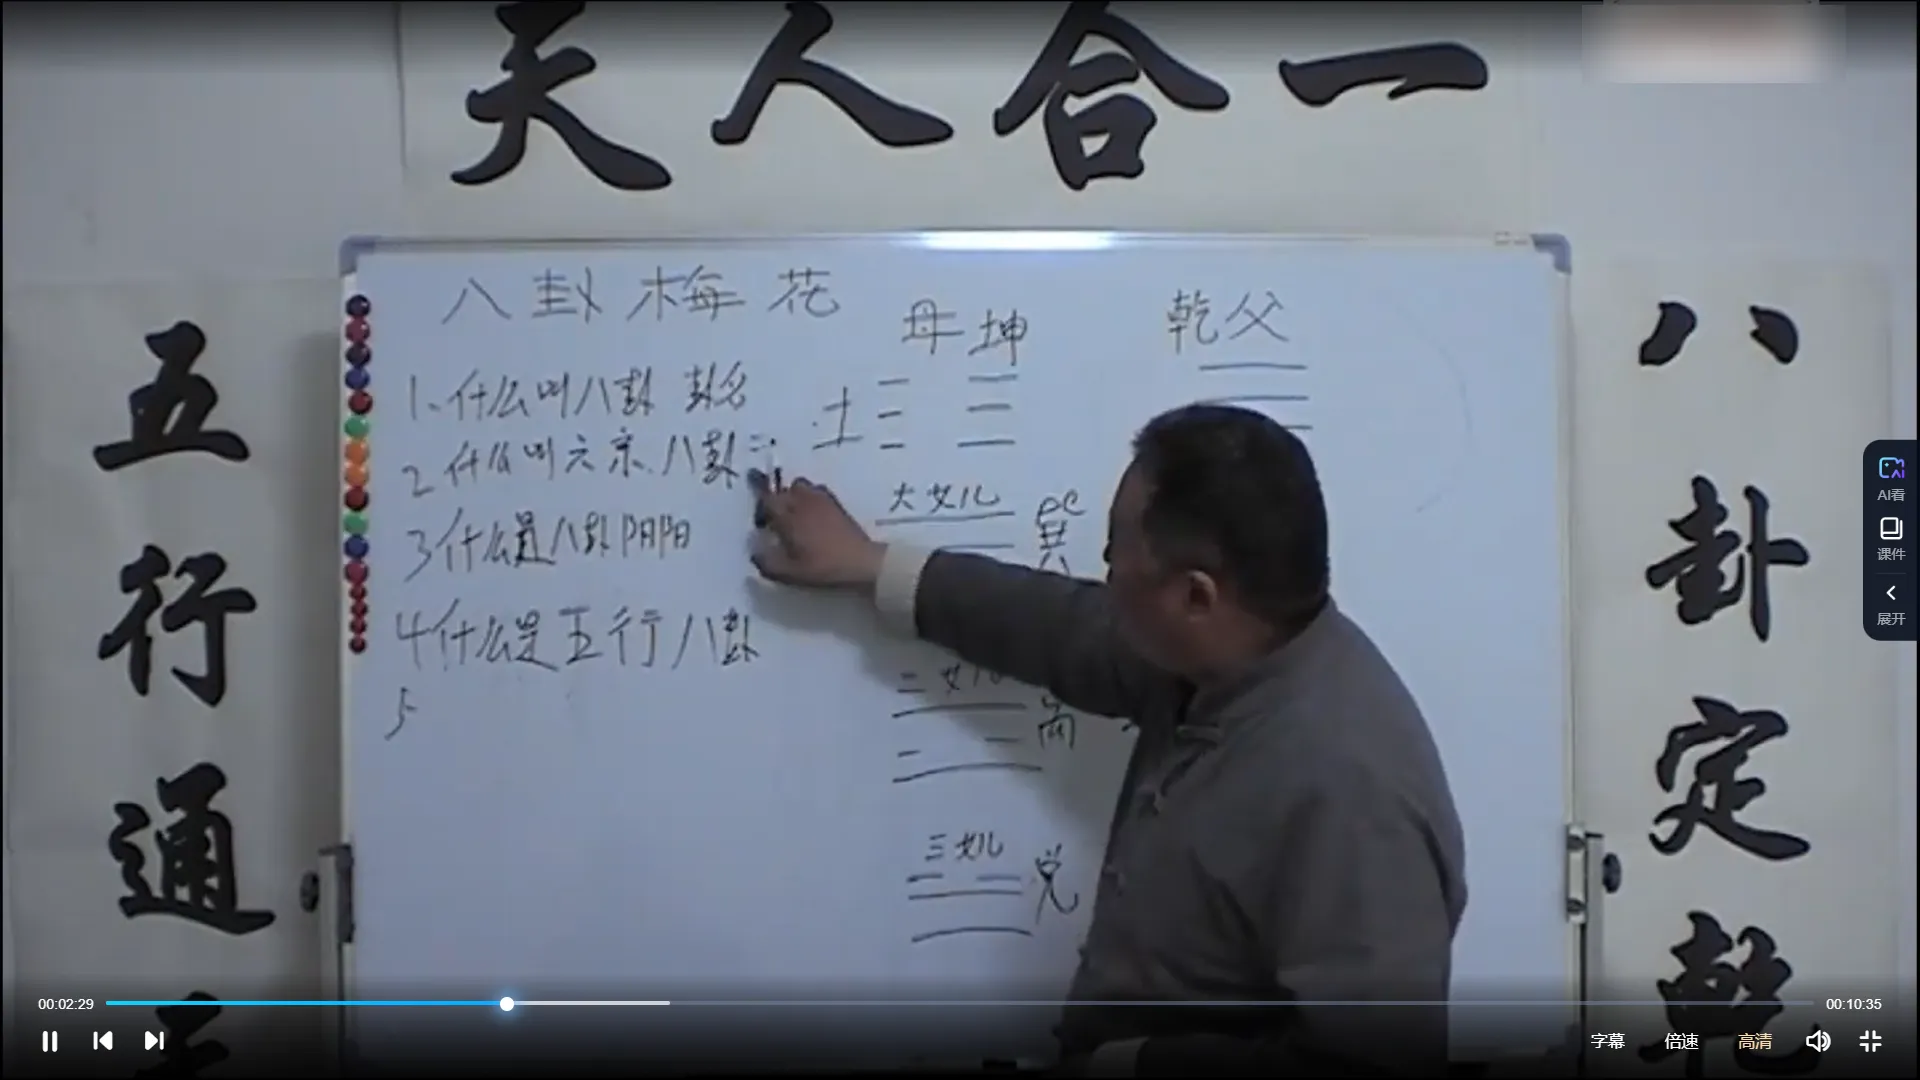 天人合一
五行通
八卦定乾
八卦梅花
1、什么叫八卦 卦名
2 什么叫六亲、八卦
3 什么是八卦阴阳
4 什么是五行八卦
5
母坤
土
乾父
大女儿
巽
二女儿
离
三女儿
兑
AI看
课件
展开
00:02:29
00:10:35
字幕
倍速
高清